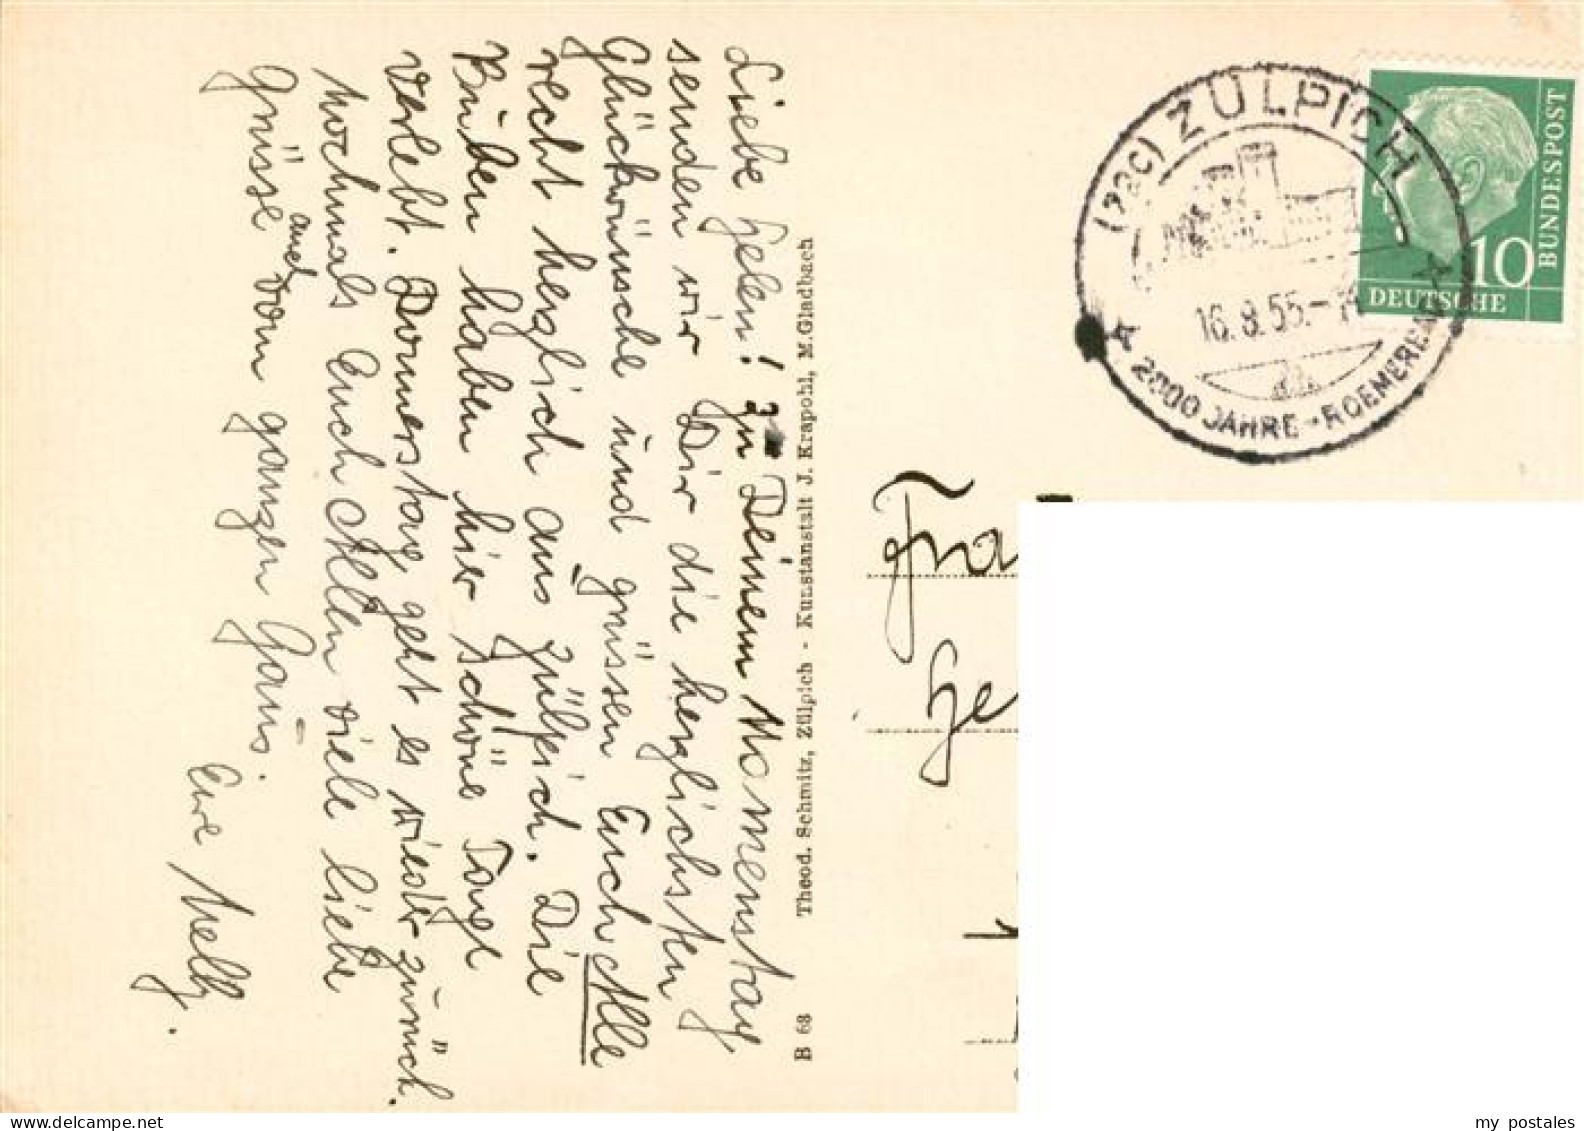 Liebe Helen! Zu Deinem Namenstag,
senden wir Dir die herzlichsten
Glückwünsche und grüssen Euch Alle
recht herzlich aus Zülpich. Die
Buben haben hier schöne Tage
verlebt. Donnerstag, geht es wieder zurück.
Nochmals Euch Allen viele liebe
Grüsse auch vom ganzen Haus.
Eure Nelly.
B 68 Theod. Schmitz, Zülpich - Kunstanstalt J. Krapohl, M. Gladbach
(22c) ZÜLPICH
16.8.55.-
2000 JAHRE - ROEMEREN
BUNDESPOST
10
DEUTSCHE
Fra
He
my postales